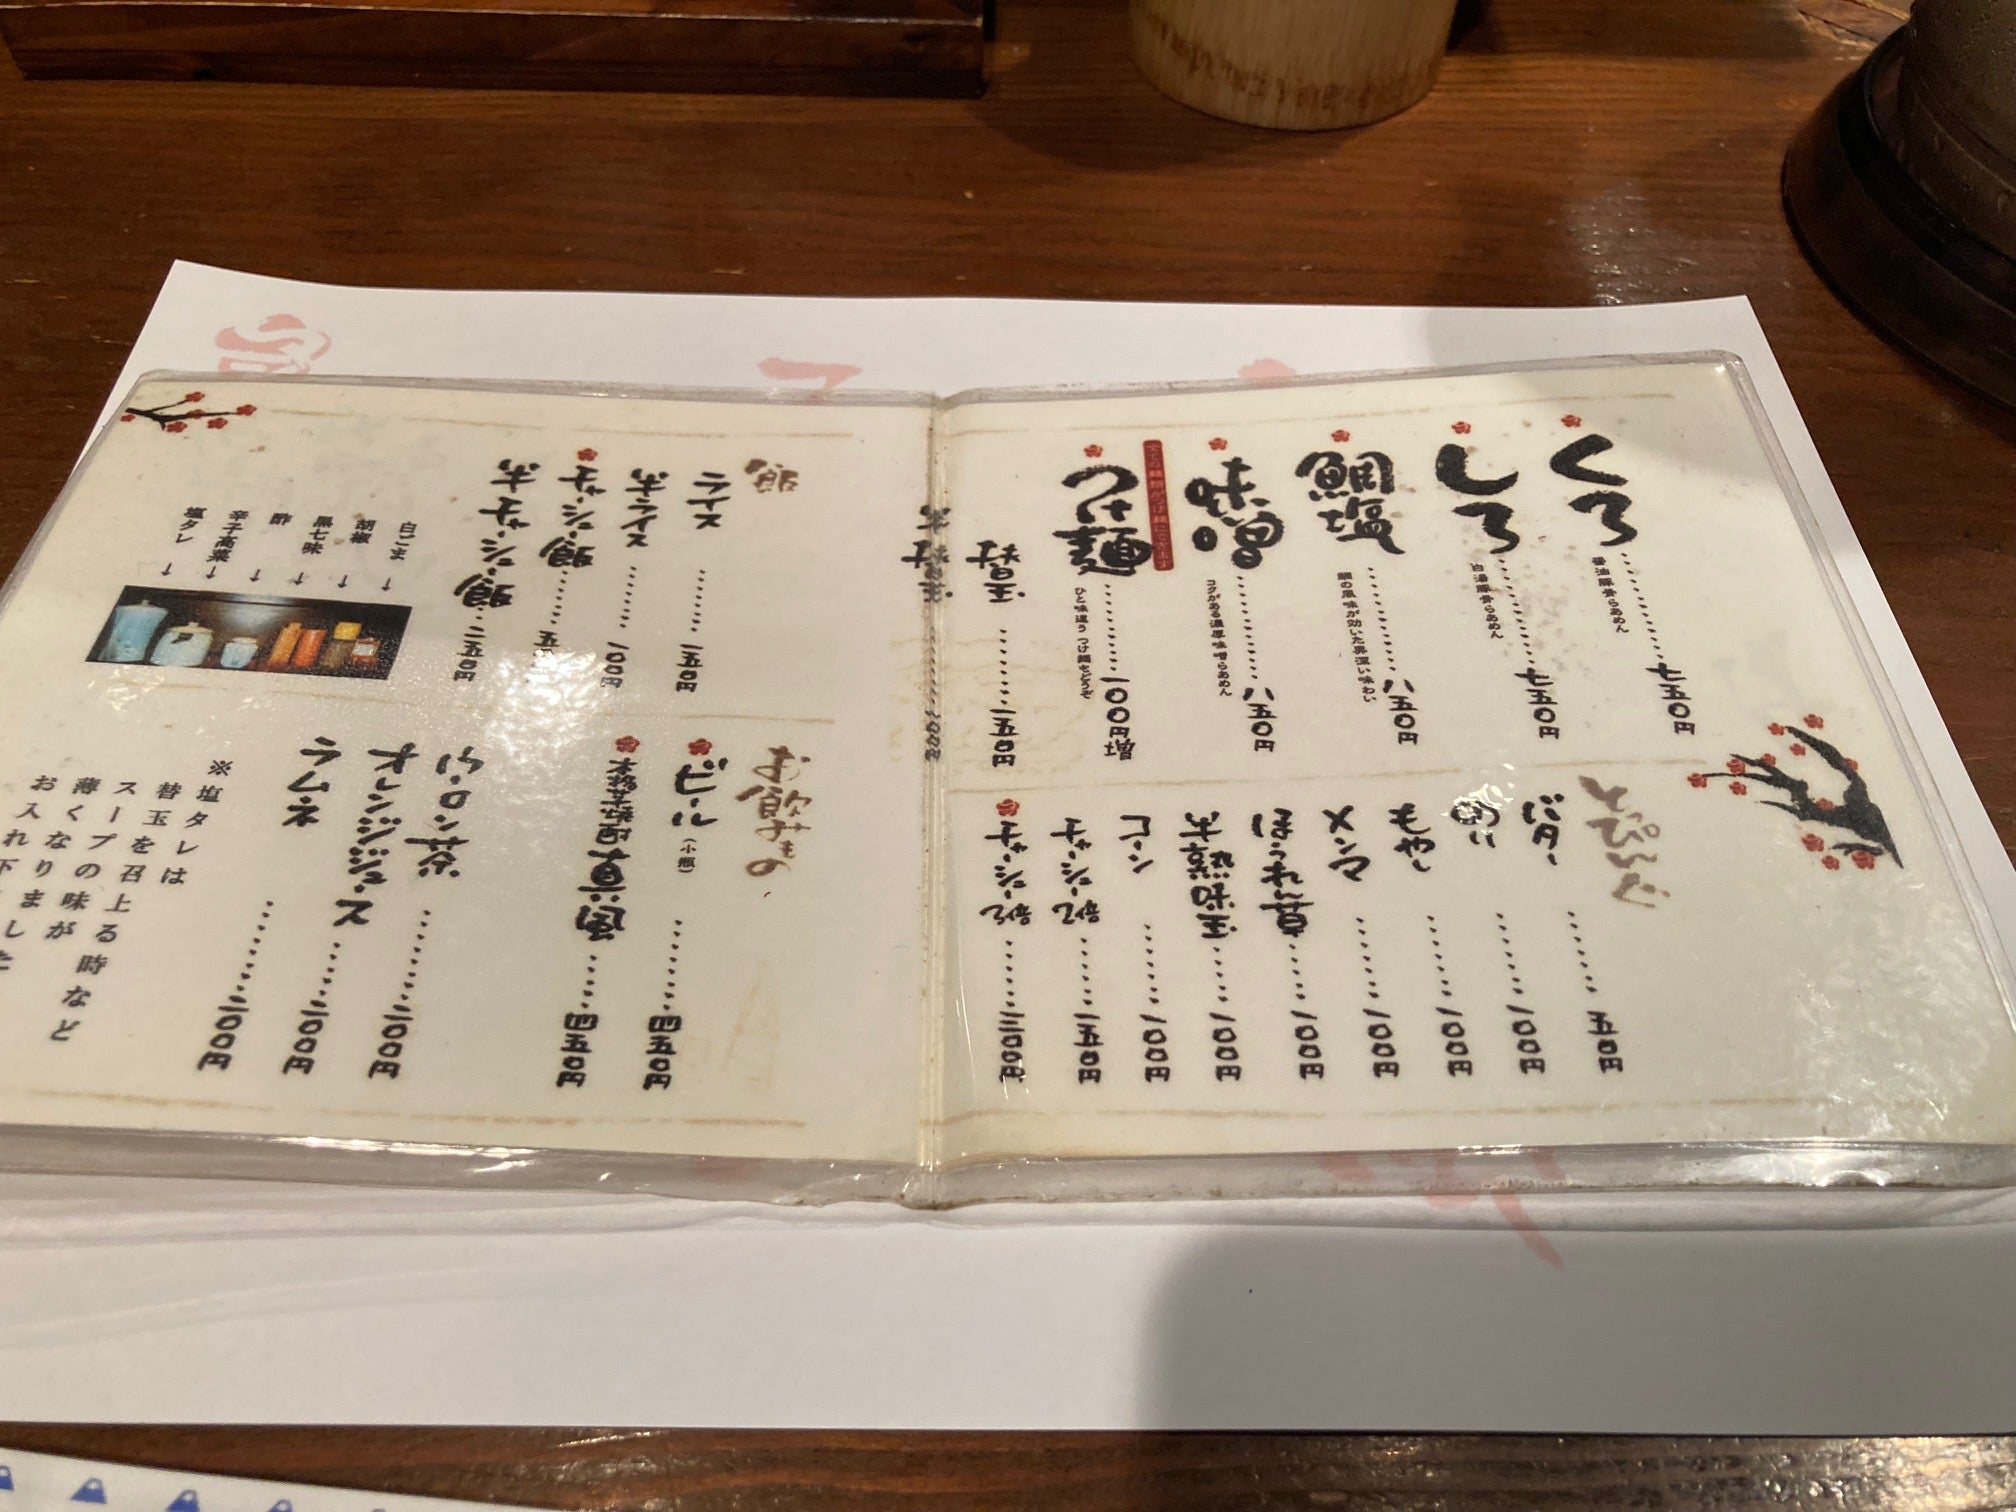 くろ
七五〇円
しろ
七五〇円
鯛塩
鯛の風味が効いた奥深い味わい
八五〇円
味噌
コクがある濃厚味噌らあめん
八五〇円
全ての麺類がつけ麺にできます
つけ麺
ひと味違うつけ麺をどうぞ
一〇〇円増
替玉
一五〇円
半替玉
とっぴんぐ
バター
五〇円
のり
一〇〇円
もやし
一〇〇円
メンマ
一〇〇円
ほうれん草
一〇〇円
半熟味玉
一〇〇円
コーン
一〇〇円
チャーシュー
チャーシュー
飯
ライス
一五〇円
半ライス
一〇〇円
チャーシュー飯
半チャーシュー飯
二五〇円
お飲みもの
ビール(小瓶)
四五〇円
四五〇円
ウーロン茶
二〇〇円
オレンジジュース
二〇〇円
ラムネ
二〇〇円
白ごま
胡椒
黒七味
酢
辛子高菜
塩タレ
※塩タレは
替玉を召上る時など
スープの味が
薄くなりましたら
お入れ下